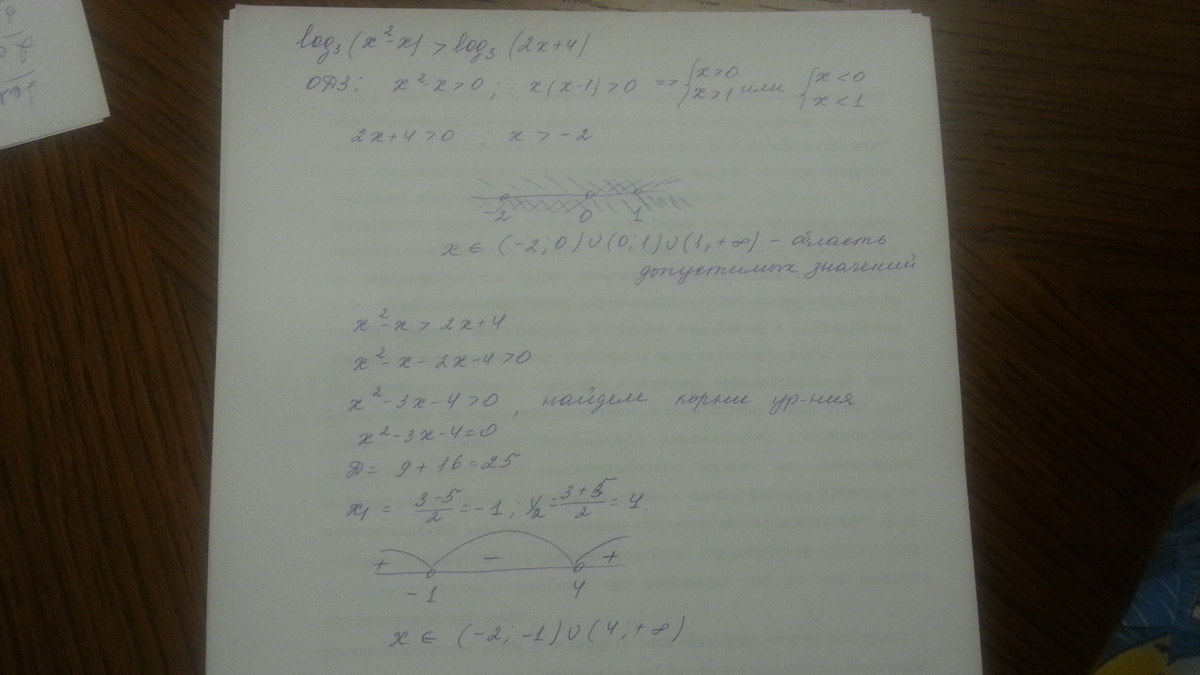 log₃(x²-x) > log₃(2x+4)
ОДЗ: x²-x>0; x(x-1)>0 => {x>0 x>1 или {x<0 x<1
2x+4>0 . x > -2
-2 0 1
x ∈ (-2;0)∪(0;1)∪(1,+∞) – область
допустимых значений
x²-x > 2x+4
x²-x-2x-4>0
x²-3x-4>0, найдем корни ур-ния
x²-3x-4=0
D= 9+16=25
x₁ = (3-5)/2 = -1; x₂ = (3+5)/2 = 4.
+ – +
-1 4
x ∈ (-2;-1)∪(4;+∞)